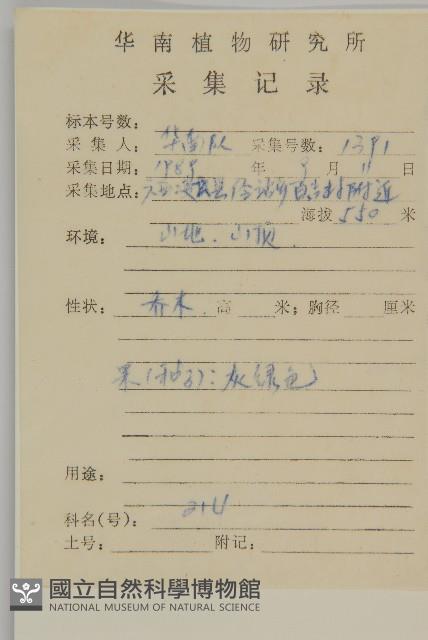 华南植物研究所
采集记录
标本号数:
采集人: 华南队 采集号数: 1391
采集日期: 1989年 9月 11日
采集地点: 附近
海拔 550 米
环境: 山地、山顶.
性状: 乔木. 高 米; 胸径 厘米
果(种子): 灰绿色
用途:
科名(号): 214
土号: 附记:
國立自然科學博物館
NATIONAL MUSEUM OF NATURAL SCIENCE